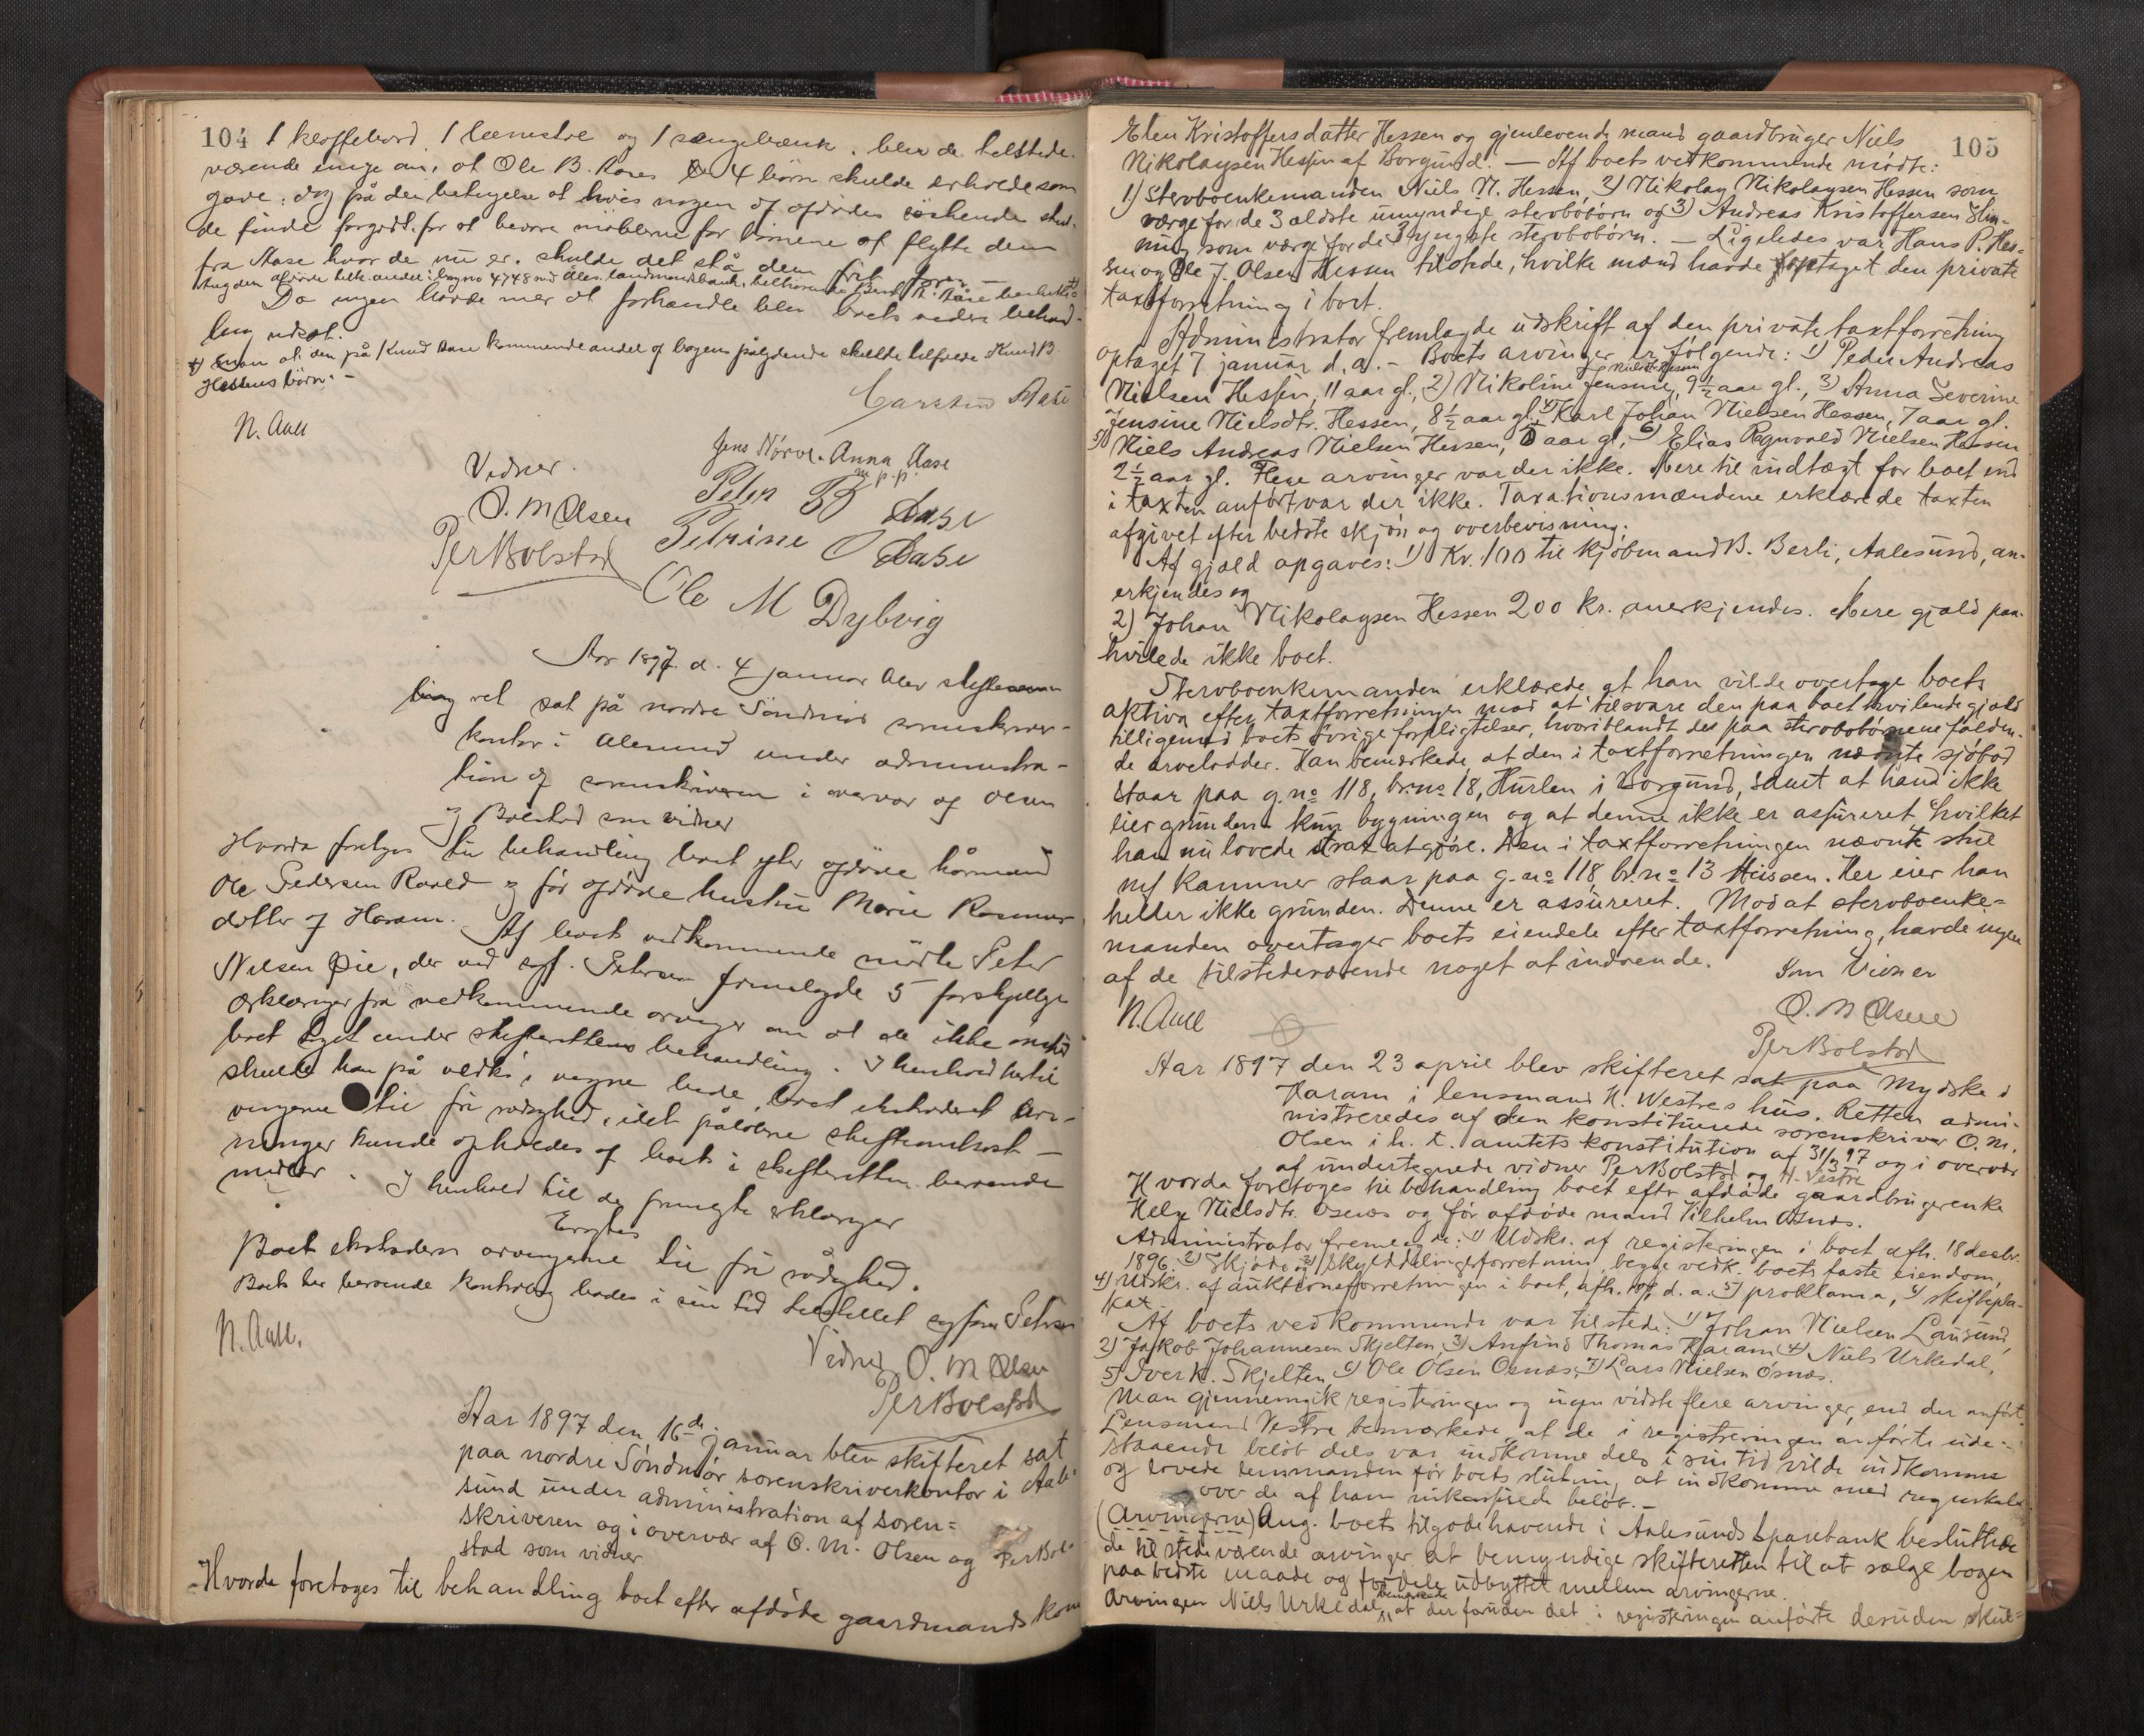 104
1 klaffebord, 1 lænestol og 1 sengebænk, blev de tilstede-
værende enige om, at Ole B. Aases 4 börn skulde erholde som
gave; dog på den betingelse at hvis nogen af afdödes söskende skul-
de finde forgodt for at bevare möblerne for börnene at flytte dem
fra Aase hvor de nu er, skulde det stå dem frit for. —
Da ingen havde mer at forhandle blev boets videre behand-
ling udsat.
Hessens börn. —
Carsten Aase
N. Aall
Jens Nörve. Anna Aase
m. p. p.
Vidner.
Peter B Aase
O. M Olsen
Petrine O Aase
Per Bolstad
Ole M Dybvig
Aar 1897 d. 4 januar blev skiftesam-
ling ret sat på nordre Söndmör sorenskriver-
kontor i Alesund under administra-
tion af sorenskriveren i overvær af Olsen
og Bolstad som vidner
Hvorda foretoges til behandling boet efter afdöde hårmand
Ole Pedersen Roald og för afdöde hustru Marie Rasmus-
datter af Haram. Af boets vedkommende mödte Peter
Nilsen Öie, der ved sagf. Petersen fremlagde 5 forskjellige
erklæringer fra vedkommende arvinger om at de ikke önsket
boet taget under skifterettens behandling. I henhold hertil
skulde han på vedk.s vegne bede boet ekstraderet arv-
vingerne til fri rådighed, idet påløbne skifteomkost-
ninger kunde opholdes af boets i skifteretten beroende
midler. I henhold til de fremlagte erklæringer
Eragtes
Boet ekstraderes arvingerne til fri rådighed.
Boets her beroende kontrabog bades i sin tid tilstillet sagförer Petersen
N. Aall.
Vidner O. M Olsen
Per Bolstad
Aar 1897 den 16de januar blev skifteret sat
paa nordre Söndmör sorenskriverkontor i Aale-
sund under administration af soren=
skriveren og i overvær af O. M. Olsen og Per Bol-
stad som vidner
Hvorda foretoges til behandling boet efter afdöde gaardmandskone
105
Elen Kristoffersdatter Hessen og gjenlevende mand gaardbruger Niels
Nikolaysen Hessen af Borgund. — Af boets vedkommende mödte:
1) Stervboenkemanden Niels N. Hessen, 2) Nikolay Nikolaysen Hessen som
værge for de 3 ældste umyndige stervbobörn og 3) Andreas Kristoffersen Slin-
ning som værge for de 3 yngste stervbobörn. — Ligeledes var Hans P. Hes-
sen og Ole J. Olsen Hessen tilstede, hvilke mænd havde optaget den private
taxtforretning i boet.
Administrator fremlagde udskrift af den private taxtforretning
optaget 7 januar d. a. — Boets arvinger er følgende: 1) Peder Andreas
Nielsen Hessen, 11 aar gl., 2) Nikoline Jensine Nielsdt. Hessen, 9½ aar gl., 3) Anna Severine
Jensine Nielsdtr. Hessen, 8½ aar gl. 4) Karl Johan Nielsen Hessen, 7 aar gl.
5) Niels Andreas Nielsen Hessen, 5 aar gl, 6) Elias Ragnvald Nielsen Hessen
2½ aar gl. Flere arvinger var der ikke. Mere til indtægt for boet end
i taxten anført var der ikke. Taxationsmændene erklærede taxten
afgivet efter bedste skjön og overbevisning.
Af gjæld opgaves: 1) Kr. 100 til kjöbmand B. Berli, Aalesund, an-
erkjendes og
2) Johan Nikolaysen Hessen 200 kr. anerkjendes. Mere gjæld paa-
hvilede ikke boet.
Stervboenkemanden erklærede at han vilde overtage boets
aktiva efter taxtforretningen mod at tilsvare den paa boet hvilende gjæld
tilligemed boets övrige forpligtelser, hvoriblandt de paa stervbobörnene falden-
de arvelodder. Han bemærkede at den i taxtforretningen nævnte sjöbod
staar paa g. no 118, br. no 18, Hurlen i Borgund, samt at han ikke
eier grunden kun bygningen og at denne ikke er assureret hvilket
han nu lovede strax at gjöre. Den i taxtforretningen nævnte stue
m/ kammer staar paa g. no 118, br. no 13 Hessen. Her eier han
heller ikke grunden. Denne er assureret. Mod at stervboenke=
manden overtager boets eiendele efter taxtforretning, havde ingen
af de tilstedeværende noget at indvende.
Som Vidner
N. Aall
O. M Olsen
Per Bolstad
Aar 1897 den 23 april blev skifteret sat paa Mydske i
Haram i lensmand H. Westres hus. Retten admi-
nistreredes af den konstituerede sorenskriver O. M.
Olsen i h. t. amtets konstitution af 31/3 97 og i overvær
af undertegnede vidner Per Bolstad og H. Vestre
Hvorda foretoges til behandling boet efter afdöde gaardbrugerenke
Helge Nielsdtr. Osnæs og för afdöde mand Vilhelm Osnæs.
Administrator fremlagde: 1) Udskr. af registeringen i boet afh. 18 decbr.
1896. 2) Skjöde og 3) skylddelingsforretning, begge vedk. boets faste eiendom,
4) Udskr. af auktionsforretningen i boet, afh. d. a. 5) proklama, 6) skiftepla-
kat.
Af boets vedkommende var tilstede: 1) Johan Nielsen Longund,
2) Jakob Johannesen Skjelten, 3) Anfind Thomas Haram 4) Niels Urkedal,
5) Iver K. Skjelten, 6) Ole Olsen Osnæs, 7) Lars Nielsen Osnæs.
Man gjennemgik registeringen og ingen vidste flere arvinger, end der anfört.
Lensmand Vestre bemærkede, at de i registreringen anførte ude-
staaende belöb dels var indkomne dels i sin tid vilde indkomme
og lovede lensmanden för boets slutning at indkomme med regnskab
over de af ham inkasserede belöb. —
(Arvingerne) Ang. boets tilgodehavende i Aalesunds Sparebank besluttede
de tilstedeværende arvinger at bemyndige skifteretten til at sælge bogen
paa bedste maade og fordele udbyttet mellem arvingerne.
Arvingen Niels Urkedal bemærkede, at der foruden det i registeringen anførte desuden skul=